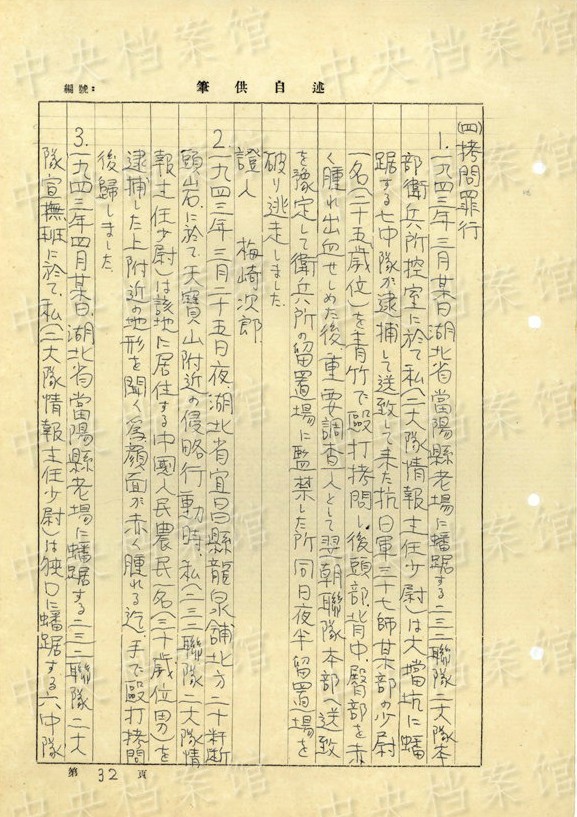 中央档案馆
編號：
筆供自述
(四)拷問罪行
1.一九四三年三月某日湖北省當陽縣老場に蟠踞する二三二聯隊二大隊本
部衛兵所控室に於て私(二大隊情報主任少尉)は大擋坑に蟠
踞する七中隊が逮捕して送致して来た抗日軍三十七師某部の少尉
一名(二十五歳位)を青竹で毆打拷問し後頭部、背中、臀部を赤
く腫れ出血せしめた後重要調査人として翌朝聯隊本部へ送致
を豫定して衛兵所の留置場に監禁した所同日夜半留置場を
破り逃走しました
證人 梅崎次郎
2.一九四三年三月二十五日夜、湖北省宜昌縣龍泉舖北方二十粁断
頭岩に於て天寶山附近の侵略行動時、私(二三二聯隊二大隊情
報主任少尉)は該地に居住する中國人民農民一名(三十歳位男)を
逮捕した上附近の地形を聞く為顔面が赤く腫れる迄、手で毆打拷問
後歸しました
3.一九四三年四月某日、湖北省當陽縣老場に蟠踞する二三二聯隊二大
隊宣撫班に於て、私(二大隊情報主任少尉)は狹口に蟠踞する六中隊
第32頁